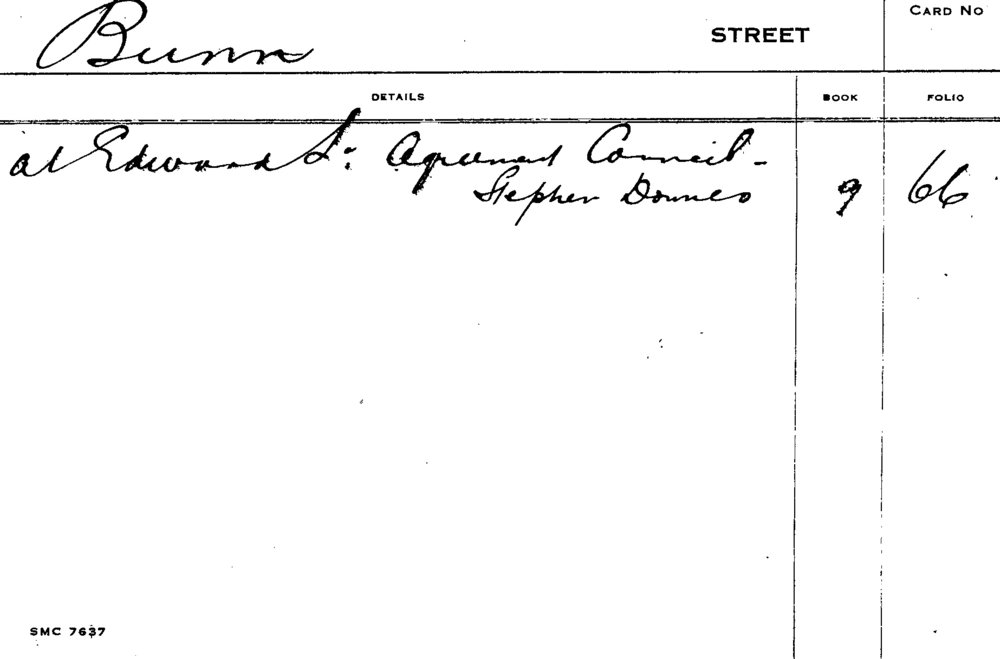 Bunn STREET CARD NO
DETAILS BOOK FOLIO
at Edward St: Agreement Council -
Stephen Downes 9 66
SMC 7637